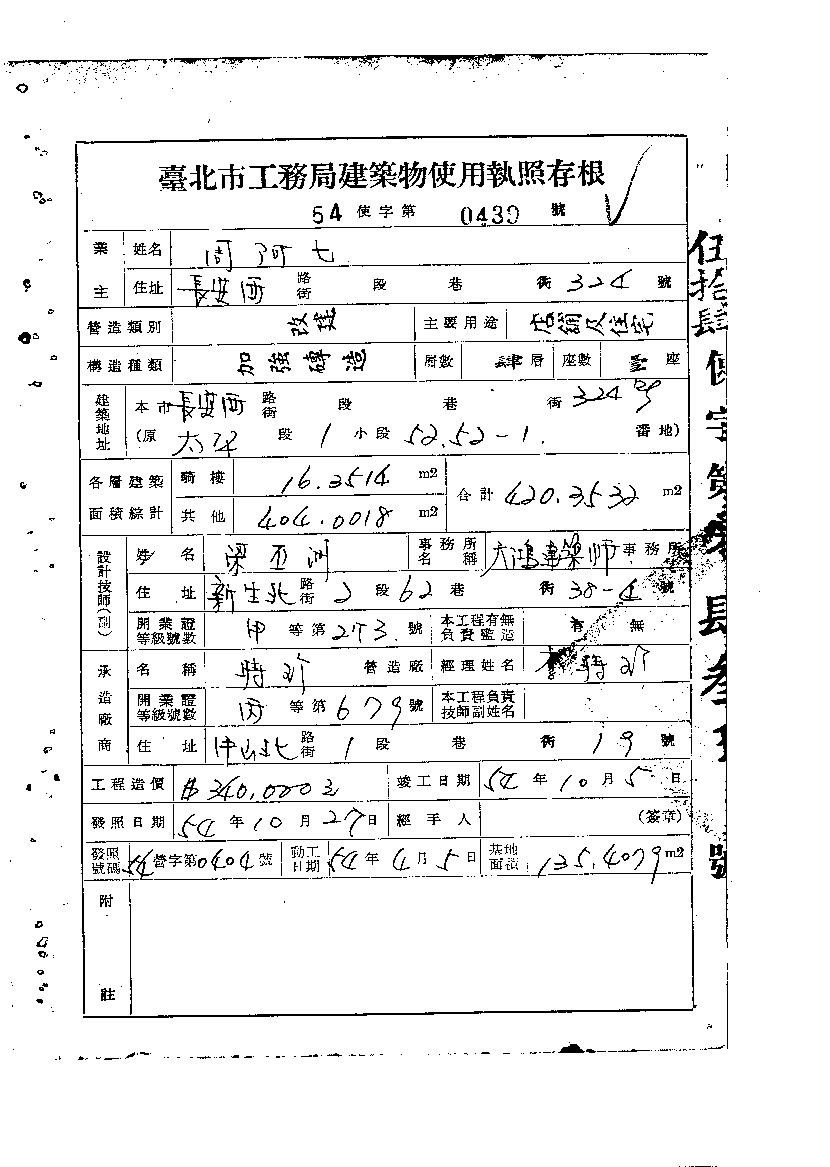 臺北市工務局建築物使用執照存根
54 使字第 0439 號
業主 姓名 周阿七
住址 長安西 路街 段 巷 衖 324 號
營造類別 改建 主要用途 店鋪及住宅
構造種類 加強磚造 層數 肆層 座數 座
建築地址 本市長安西 路街 段 巷 衖 324號
(原 太平 段 1 小段 52.52-1. 番地)
各層建築面積綜計 騎樓 16.3514 m2 合計 420.3532 m2
其他 404.0018 m2
設計技師(副) 姓名 梁亞洲 事務所名稱 大鴻建築師 事務所
住址 新生北 路街 2 段 62 巷 衖 38-4 號
開業證等級號數 甲 等第 273. 號 本工程有無負責監造 有 無
承造廠商 名稱 時珍 營造廠 經理姓名 李時珍
開業證等級號數 丙 等第 679 號 本工程負責技師副姓名
住址 中山北 路街 1 段 巷 衖 19 號
工程造價 340,000 竣工日期 54 年 10 月 5 日
發照日期 54 年 10 月 27 日 經手人 (簽章)
發照號碼 54 營字第 0404 號 動工日期 54 年 4 月 5 日 基地面積 135.4079 m2
附註
伍拾肆使字第 肆叁 號